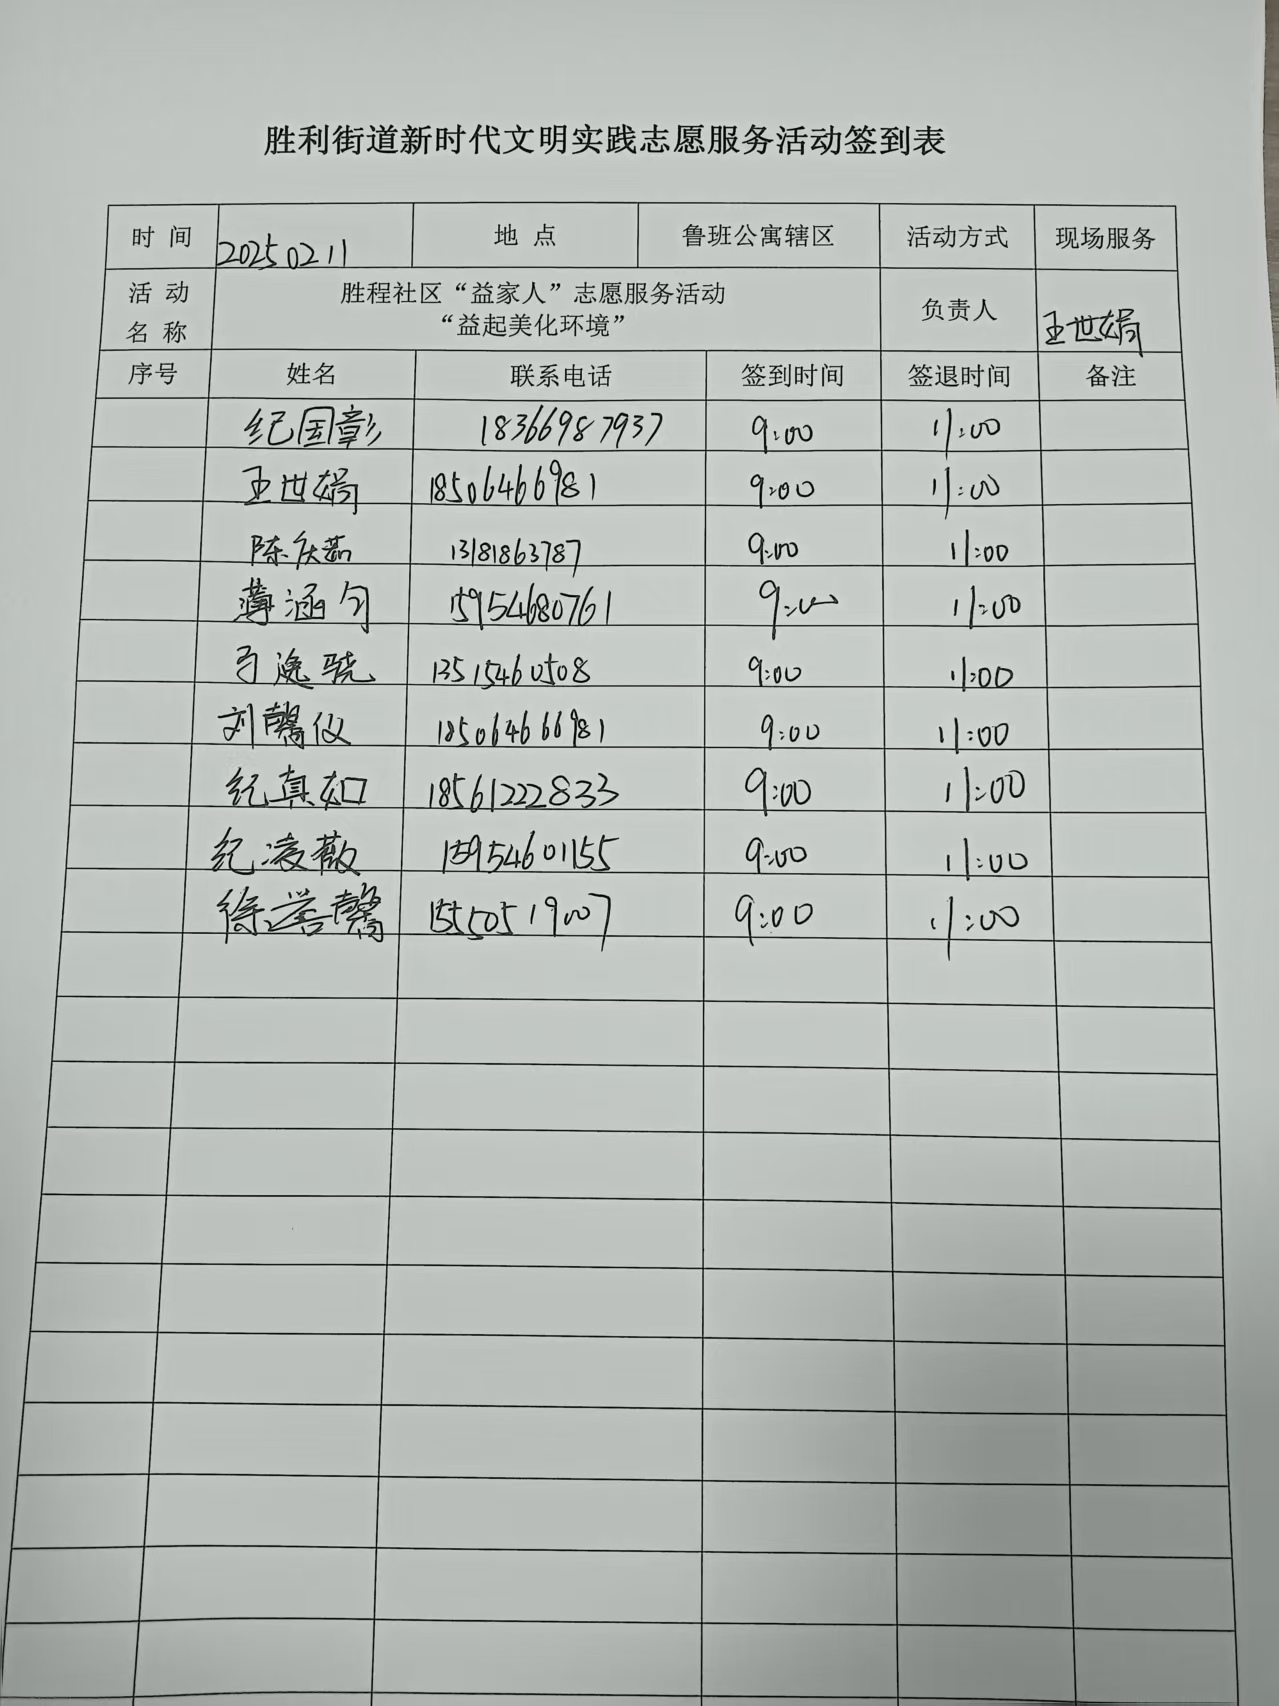 胜利街道新时代文明实践志愿服务活动签到表
时间 20250211 地点 鲁班公寓辖区 活动方式 现场服务
活动名称 胜程社区“益家人”志愿服务活动
“益起美化环境” 负责人 王世娟
序号 姓名 联系电话 签到时间 签退时间 备注
纪国彰 18366987937 9:00 11:00
王世娟 18506466981 9:00 11:00
陈庆茹 13181863787 9:00 11:00
薄涵匀 15954680761 9:00 11:00
逸骁 13515460508 9:00 11:00
刘馨仪 18506466981 9:00 11:00
纪真如 18561222833 9:00 11:00
纪凌薇 15954601155 9:00 11:00
徐誉馨 15550519007 9:00 11:00